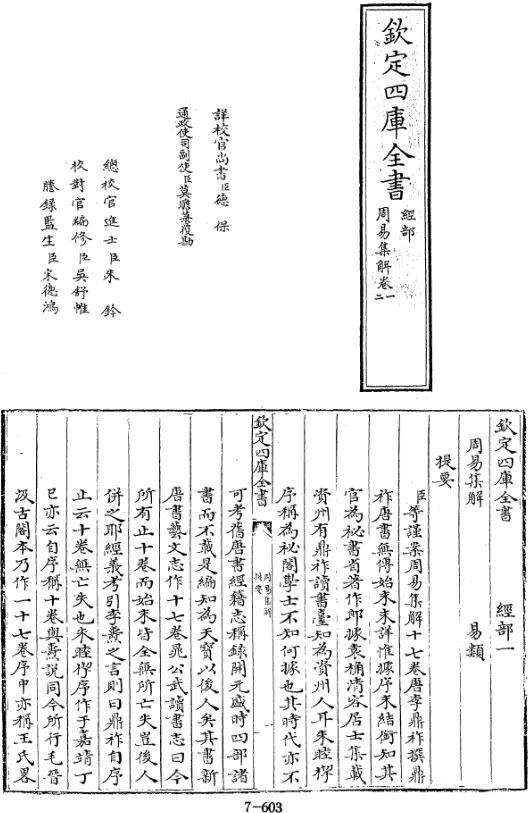 欽定四庫全書
經部
周易集解卷一
二
詳校官尚書臣德保
通政使司副使臣莫瞻菉覆勘
總校官進士臣朱鈐
校對官編修臣吳舒帷
謄錄監生臣宋德鴻
欽定四庫全書 經部一
周易集解 易類
提要
臣等謹案周易集解十七卷唐李鼎祚撰鼎
祚唐書無傳始末未詳惟據序末結銜知其
官為秘書省著作郎據袁桷清容居士集載
資州有鼎祚讀書臺知為資州人耳朱睦㮮
序稱為秘閣學士不知何據也其時代亦不
欽定四庫全書
周易集解
提要
可考舊唐書經籍志稱錄開元盛時四部諸
書而不載是編知為天寶以後人矣其書新
唐書藝文志作十七卷晁公武讀書志曰今
所有止十卷而始末皆全無所亡失豈後人
併之耶經義考引李燾之言則曰鼎祚自序
止云十卷無亡失也朱睦㮮序作于嘉靖丁
巳亦云自序稱十卷與燾說同今所行毛晉
汲古閣本乃作一十七卷序中亦稱王氏畧
7-603